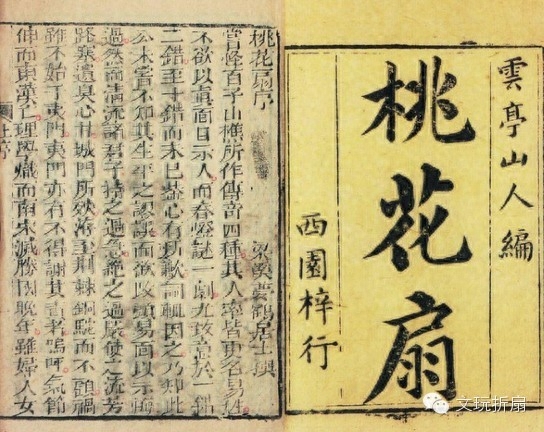 雲亭山人編
桃花扇
西園梓行
桃花扇序
梁溪夢鶴居士撰
嘗怪百子山樵所作傳奇四種其人率皆更名易姓
不欲以眞面目示人而春燈謎一劇尤致意於一錯
二錯至十錯而未已蓋心有所歉詞輒因之乃知此
公未嘗不知其生平之謬誤而欲改頭易面以示悔
過然而清流諸君子持之過急絶之過嚴使之流芳
路塞遺臭心甘城門所殃洊至荆棘銅駝而不顧禍
雖不始于夷門夷門亦有不得謝其責者嗚呼氣節
伸而東漢亡理學熾而南宋滅勝國晚年雖婦人女
文玩折扇